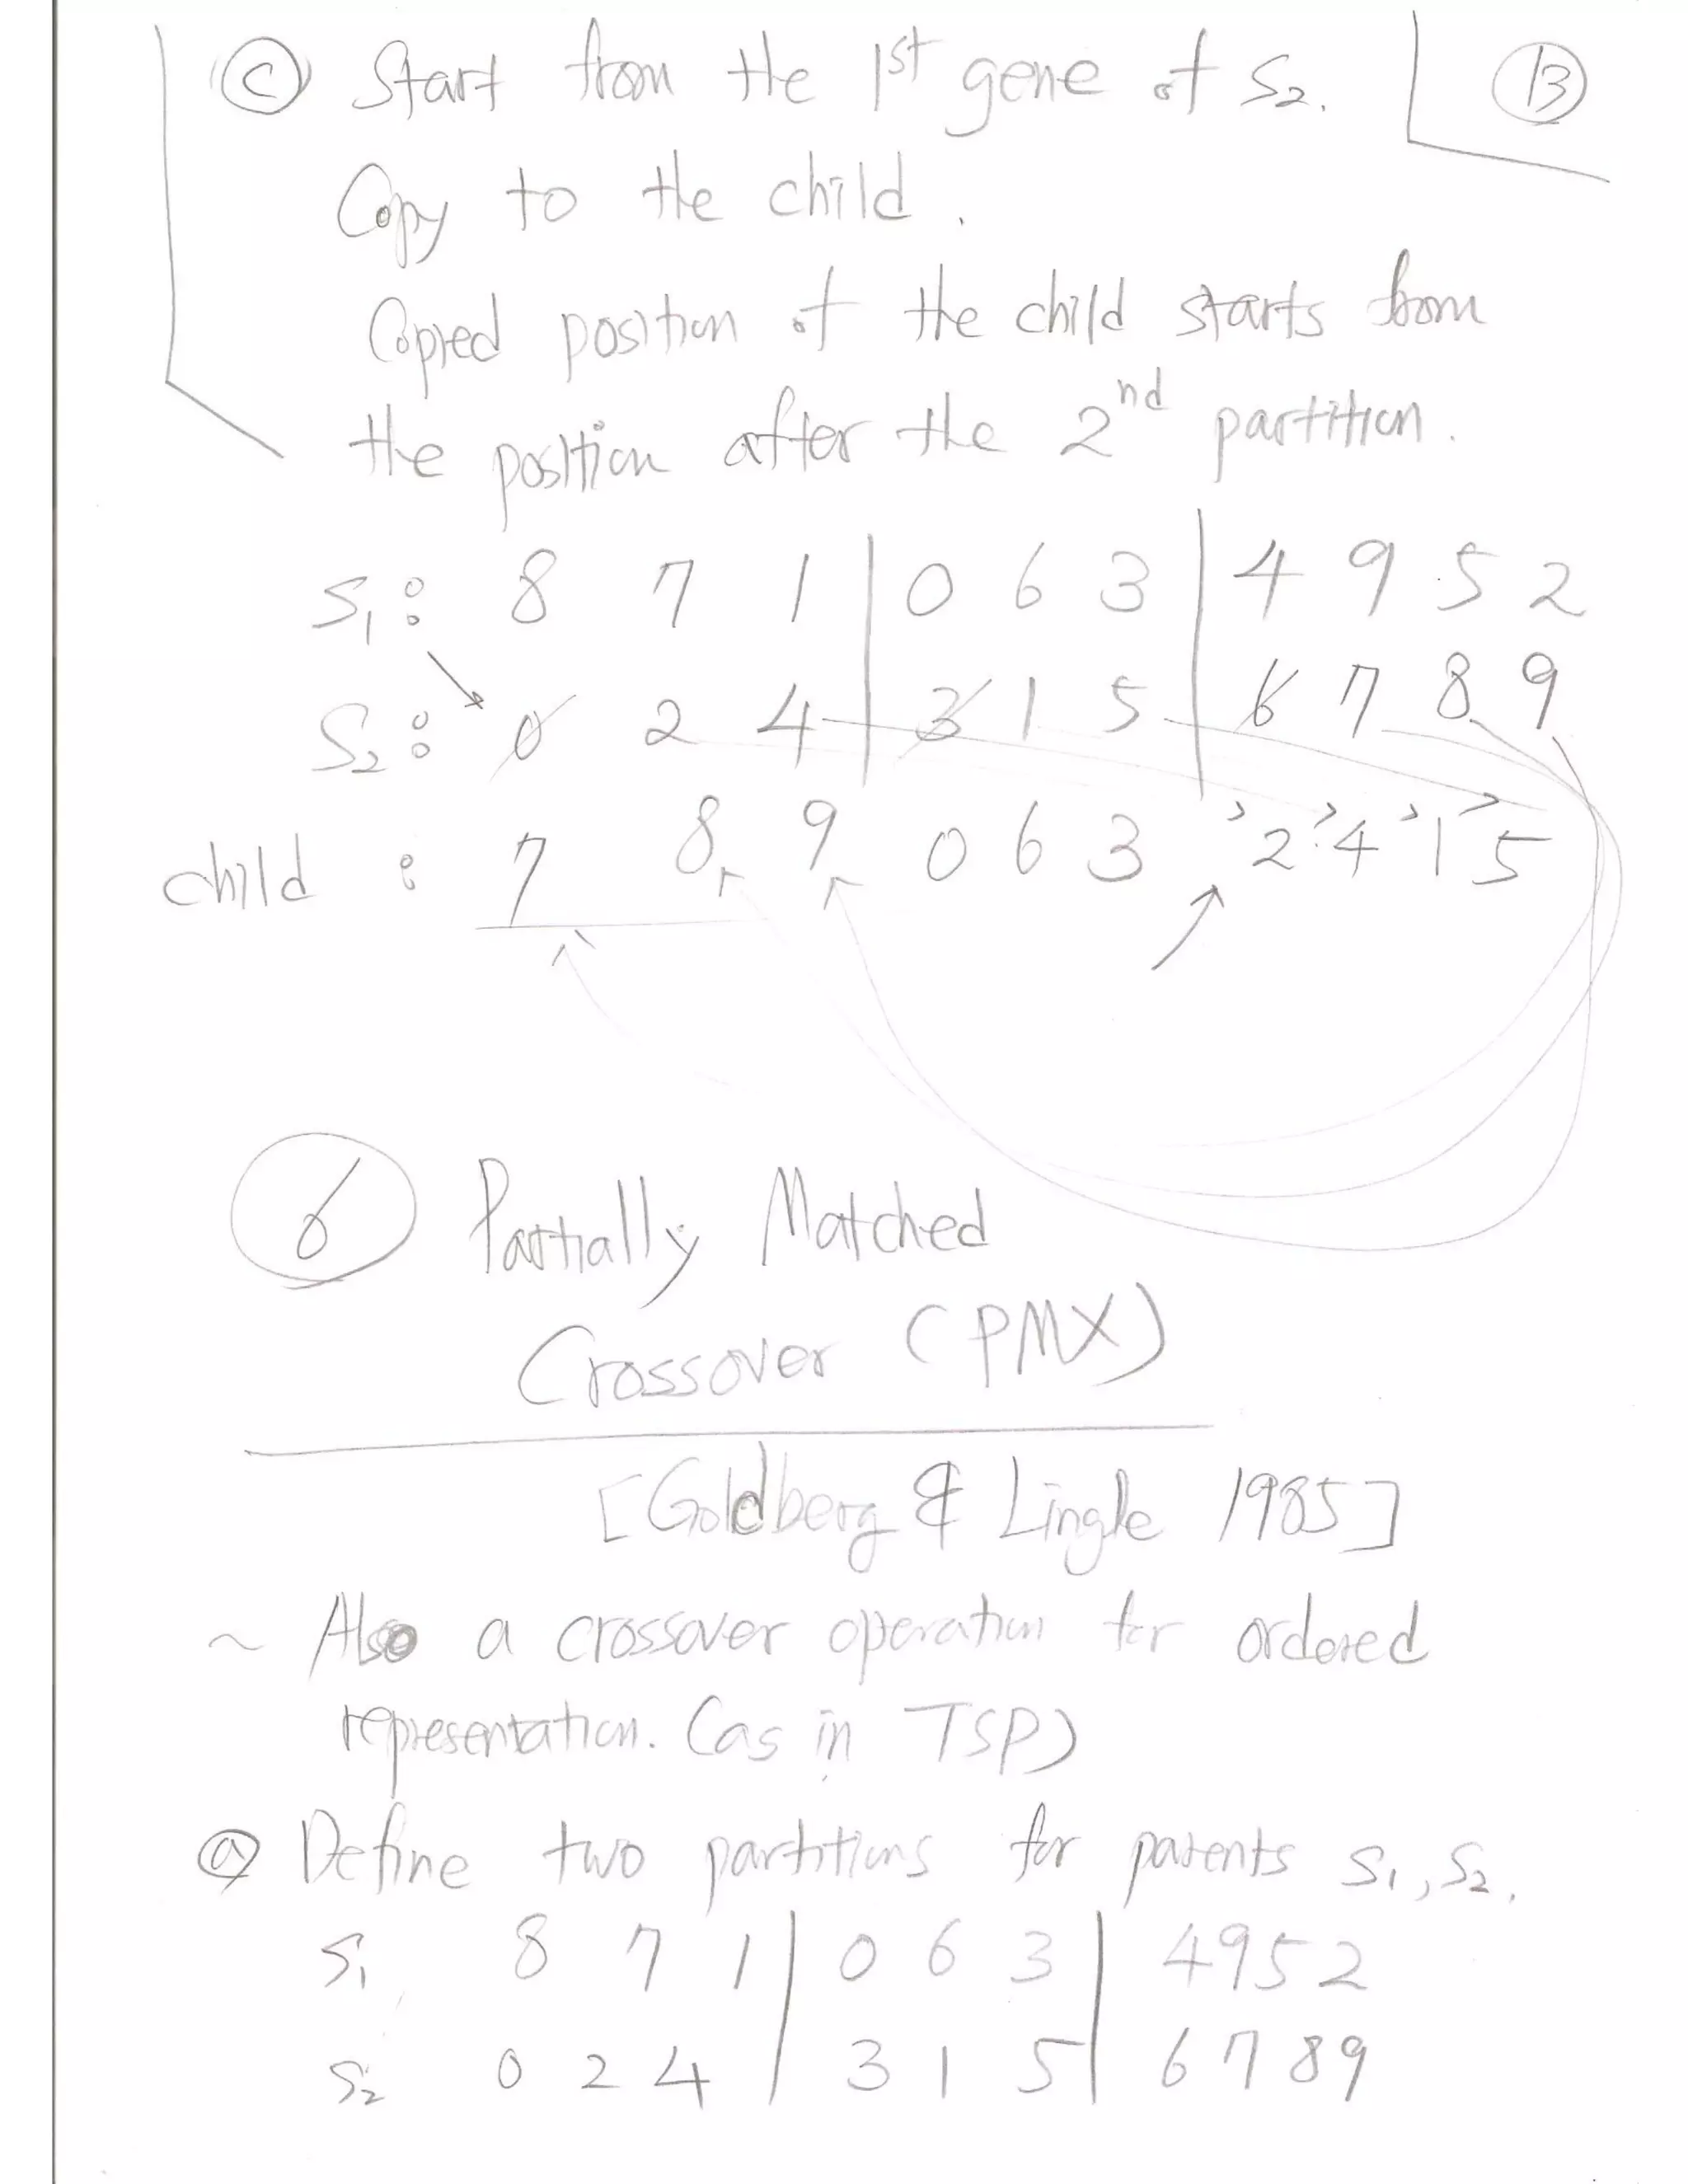 ⓒ Start from the 1st gene of S2. ⑬
Copy to the child.
Copied position of the child starts from
the position after the 2nd partition.
S1: 8 7 1 | 0 6 3 | 4 9 5 2
S2: 0 2 4 | 3 1 5 | 6 7 8 9
child : 7 8 9 0 6 3 2 4 1 5
⑥ Partially Matched
Crossover (PMX)
[Goldberg & Lingle 1985]
~ Also a crossover operation for ordered
representation. (as in TSP)
ⓐ Define two partitions for parents S1, S2.
S1 8 7 1 | 0 6 3 | 4 9 5 2
S2 0 2 4 | 3 1 5 | 6 7 8 9